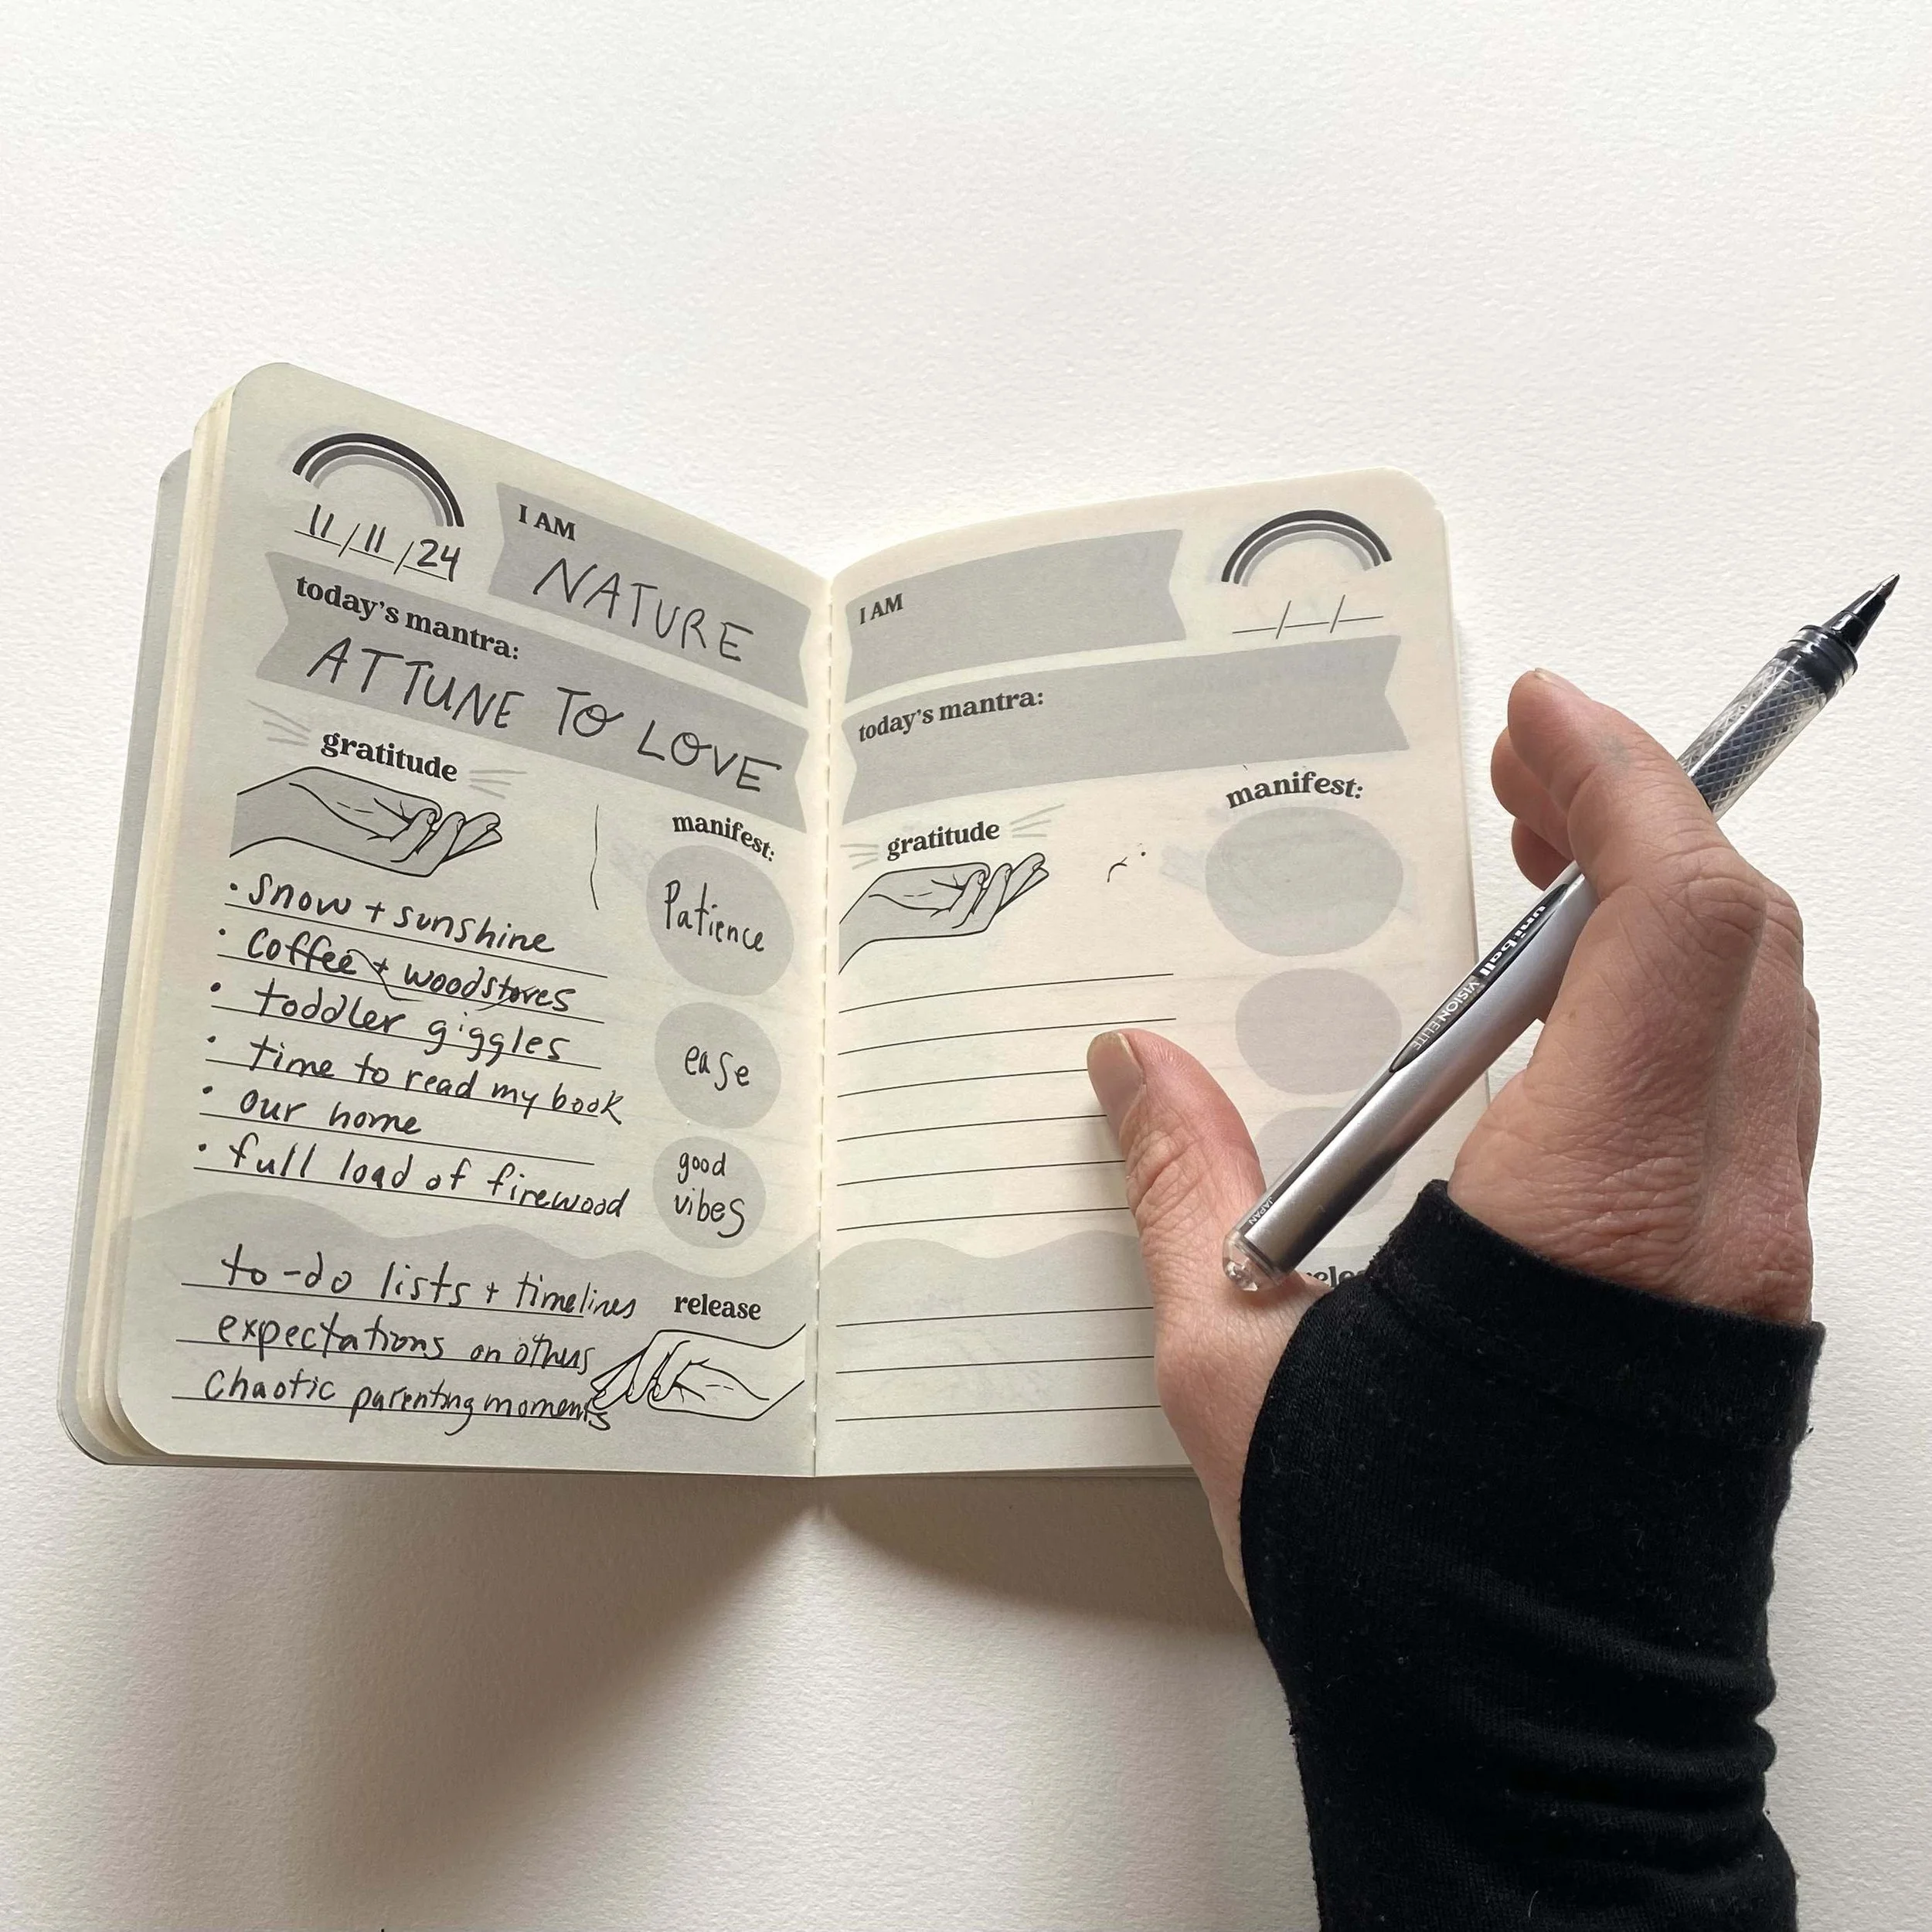 11/11/24
I AM
NATURE
today's mantra:
ATTUNE TO LOVE
gratitude
• snow + sunshine
• coffee + woodstoves
• toddler giggles
• time to read my book
• our home
• full load of firewood
manifest:
Patience
ease
good
vibes
to-do lists + timelines
expectations on others
chaotic parenting moments
release
I AM
__/__/__
today's mantra:
gratitude
manifest:
release
uniball
VISION ELITE
JAPAN